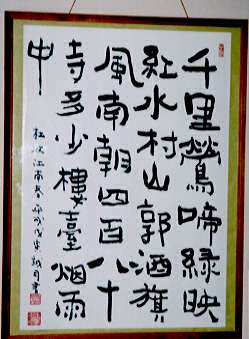 千里鶯啼綠映
紅水村山郭酒旗
風南朝四百八十
寺多少樓臺烟雨
中
杜牧江南春